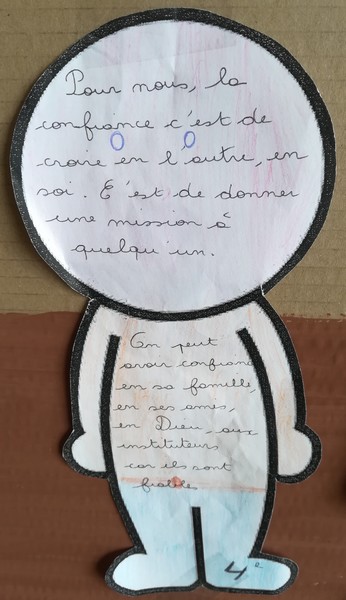 Pour nous, la
confiance c'est de
croire en l'autre, en
soi. C'est de donner
une mission à
quelqu'un.
On peut
avoir confiance
en sa famille,
en ses amis,
en Dieu, aux
instituteurs
car ils sont
fiables
4e